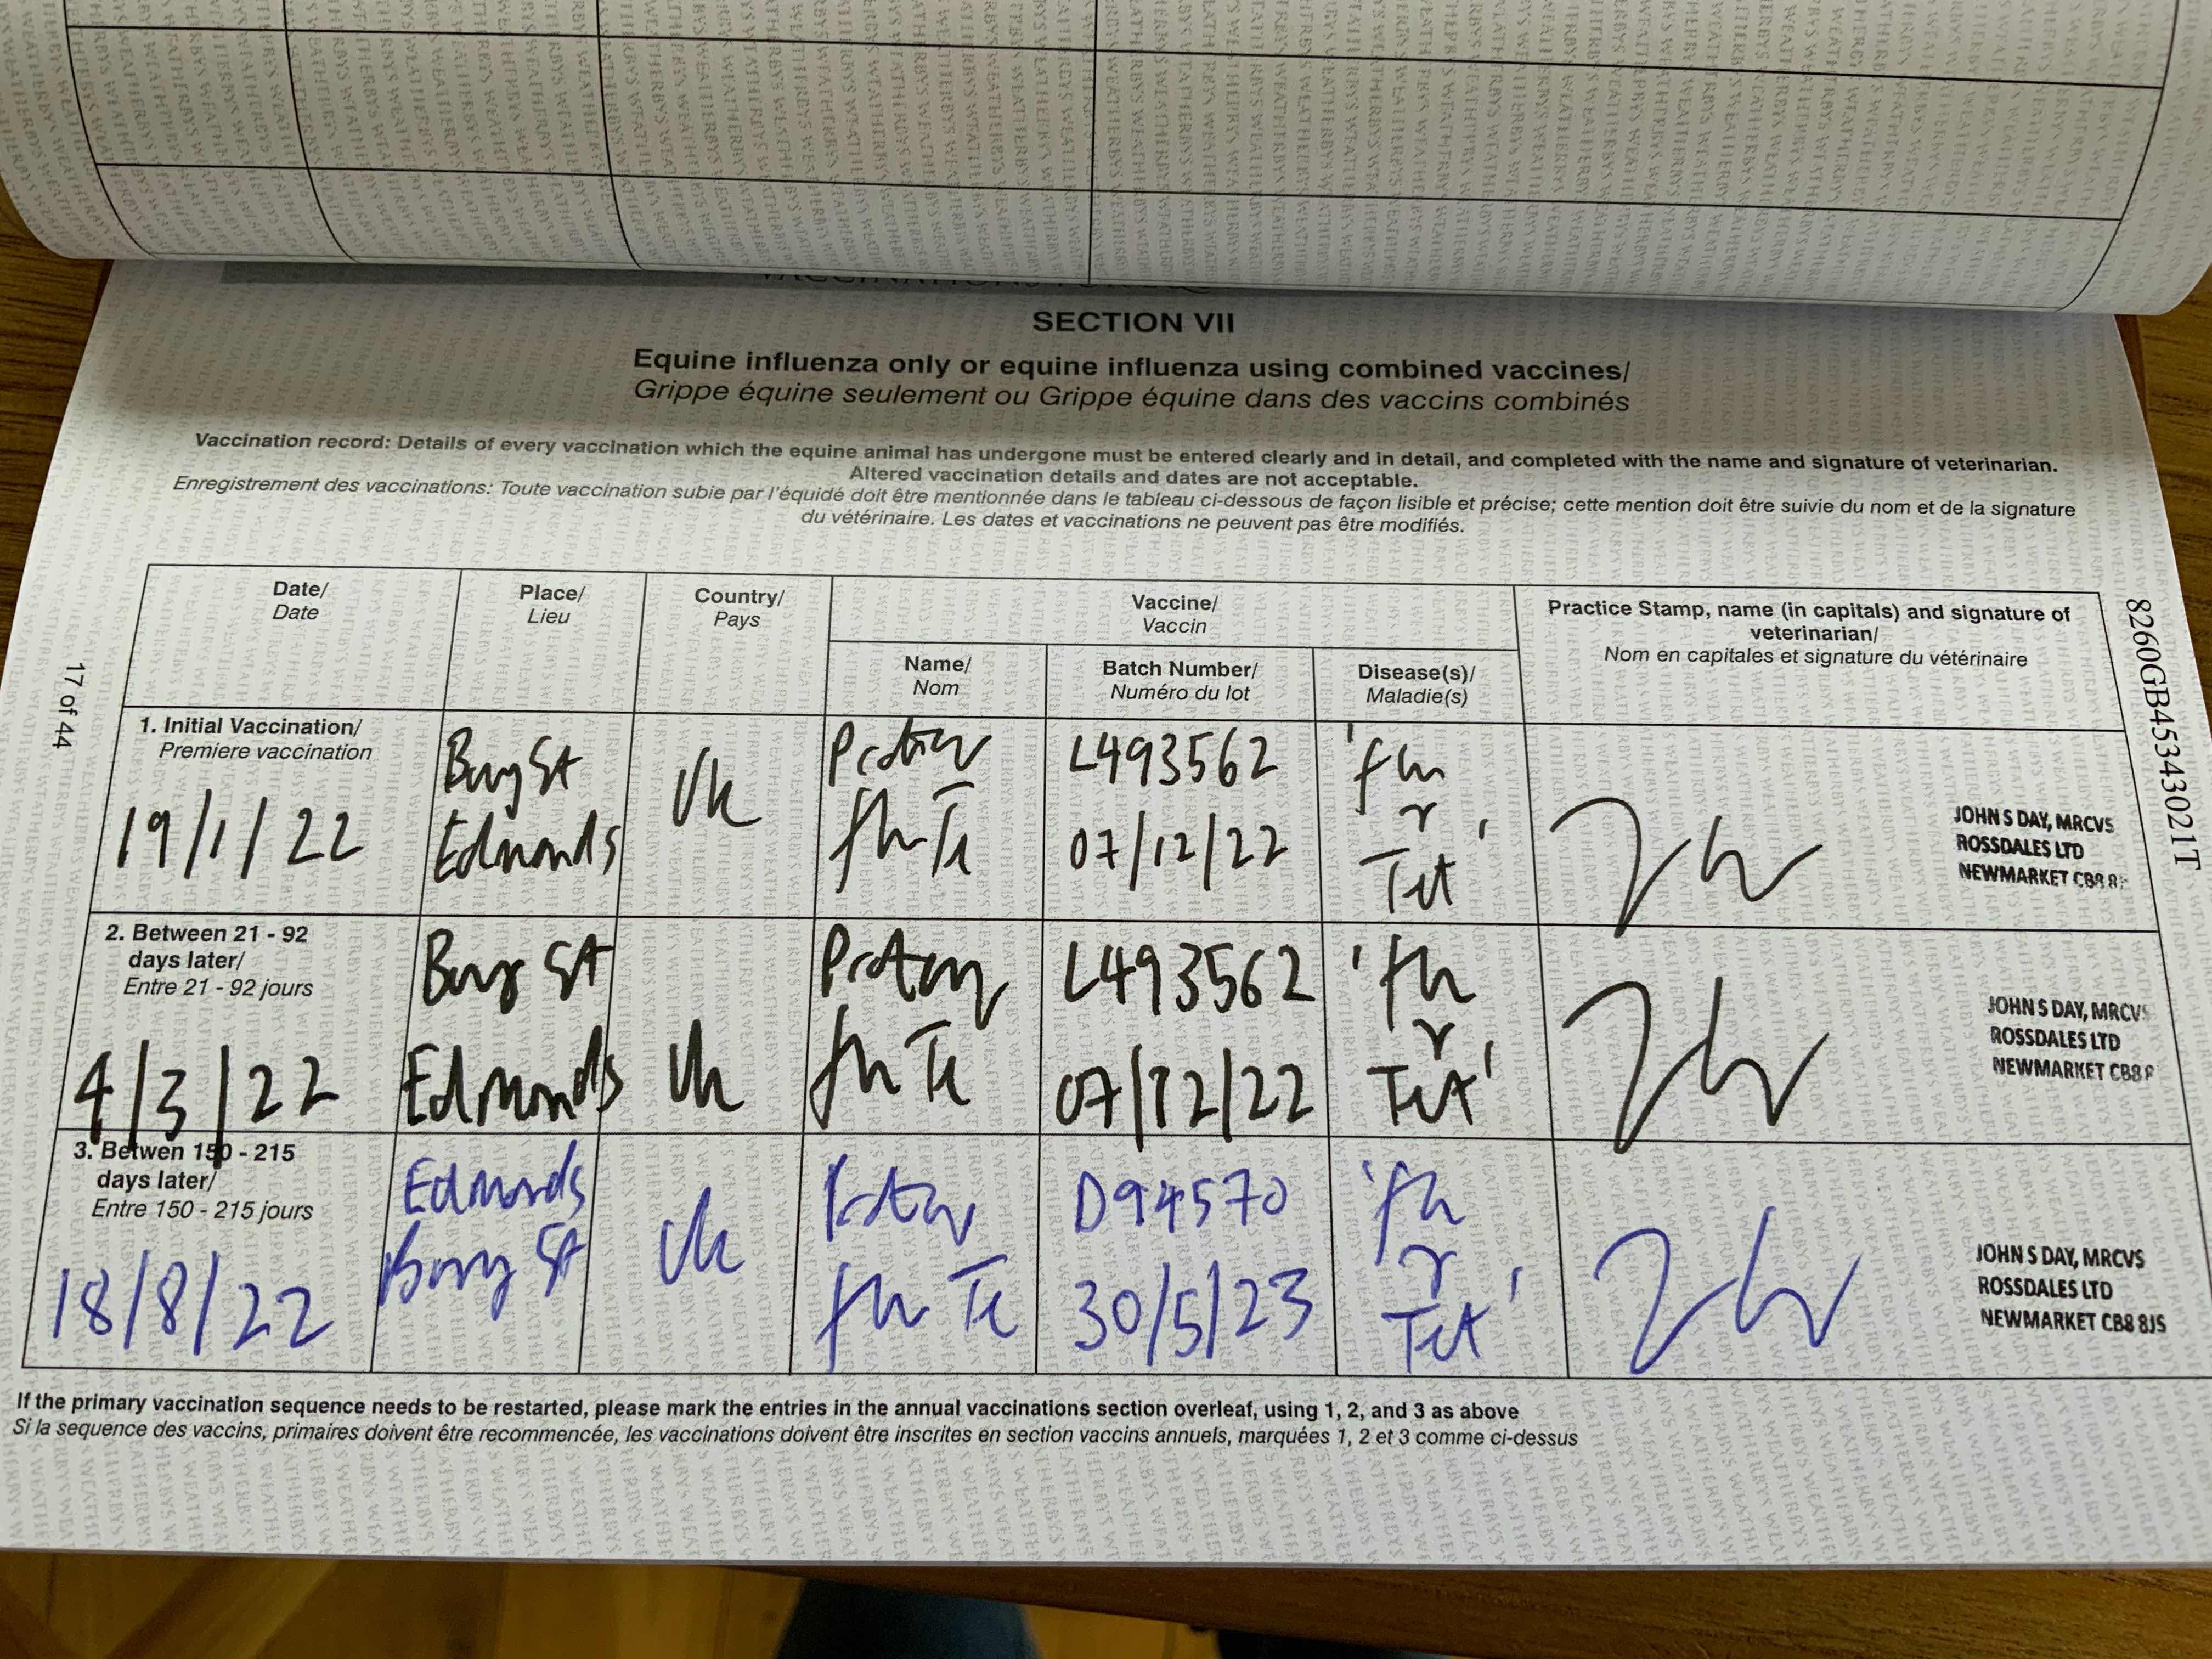 SECTION VII
Equine influenza only or equine influenza using combined vaccines/
Grippe équine seulement ou Grippe équine dans des vaccins combinés
Vaccination record: Details of every vaccination which the equine animal has undergone must be entered clearly and in detail, and completed with the name and signature of veterinarian.
Altered vaccination details and dates are not acceptable.
Enregistrement des vaccinations: Toute vaccination subie par l'équidé doit être mentionnée dans le tableau ci-dessous de façon lisible et précise; cette mention doit être suivie du nom et de la signature
du vétérinaire. Les dates et vaccinations ne peuvent pas être modifiés.
Date/
Date
Place/
Lieu
Country/
Pays
Vaccine/
Vaccin
Name/
Nom
Batch Number/
Numéro du lot
Disease(s)/
Maladie(s)
Practice Stamp, name (in capitals) and signature of
veterinarian/
Nom en capitales et signature du vétérinaire
1. Initial Vaccination/
Premiere vaccination
19/1/22
Bury St
Edmonds
Uk
L493562
07/12/22
Tet
JOHN S DAY, MRCVS
ROSSDALES LTD
NEWMARKET CB8
2. Between 21 - 92
days later/
Entre 21 - 92 jours
4/3/22
Bury St
Edmonds
Uk
L493562
07/12/22
Tet
JOHN S DAY, MRCVS
ROSSDALES LTD
NEWMARKET CB8
3. Betwen 150 - 215
days later/
Entre 150 - 215 jours
18/8/22
Edmonds
Bury St
Uk
D94570
30/5/23
Tet
JOHN S DAY, MRCVS
ROSSDALES LTD
NEWMARKET CB8 8JS
If the primary vaccination sequence needs to be restarted, please mark the entries in the annual vaccinations section overleaf, using 1, 2, and 3 as above
Si la sequence des vaccins, primaires doivent être recommencée, les vaccinations doivent être inscrites en section vaccins annuels, marquées 1, 2 et 3 comme ci-dessus
17 of 44
8260GB45343021T